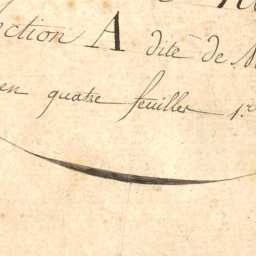 ection A dite de
en quatre feuilles 1.re